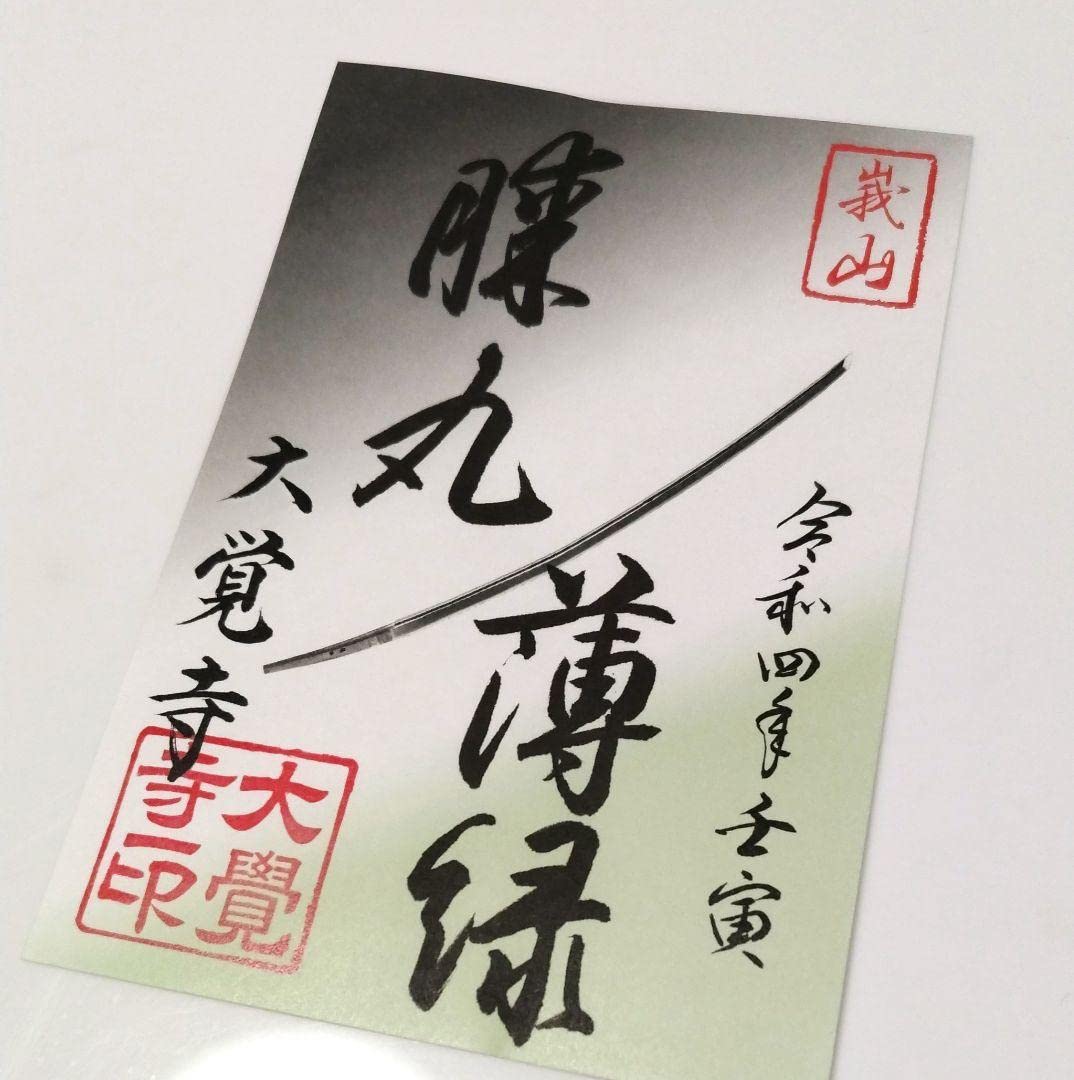 峩山
令和四年壬寅
膝丸
薄緑
大覚寺
大覺
寺印